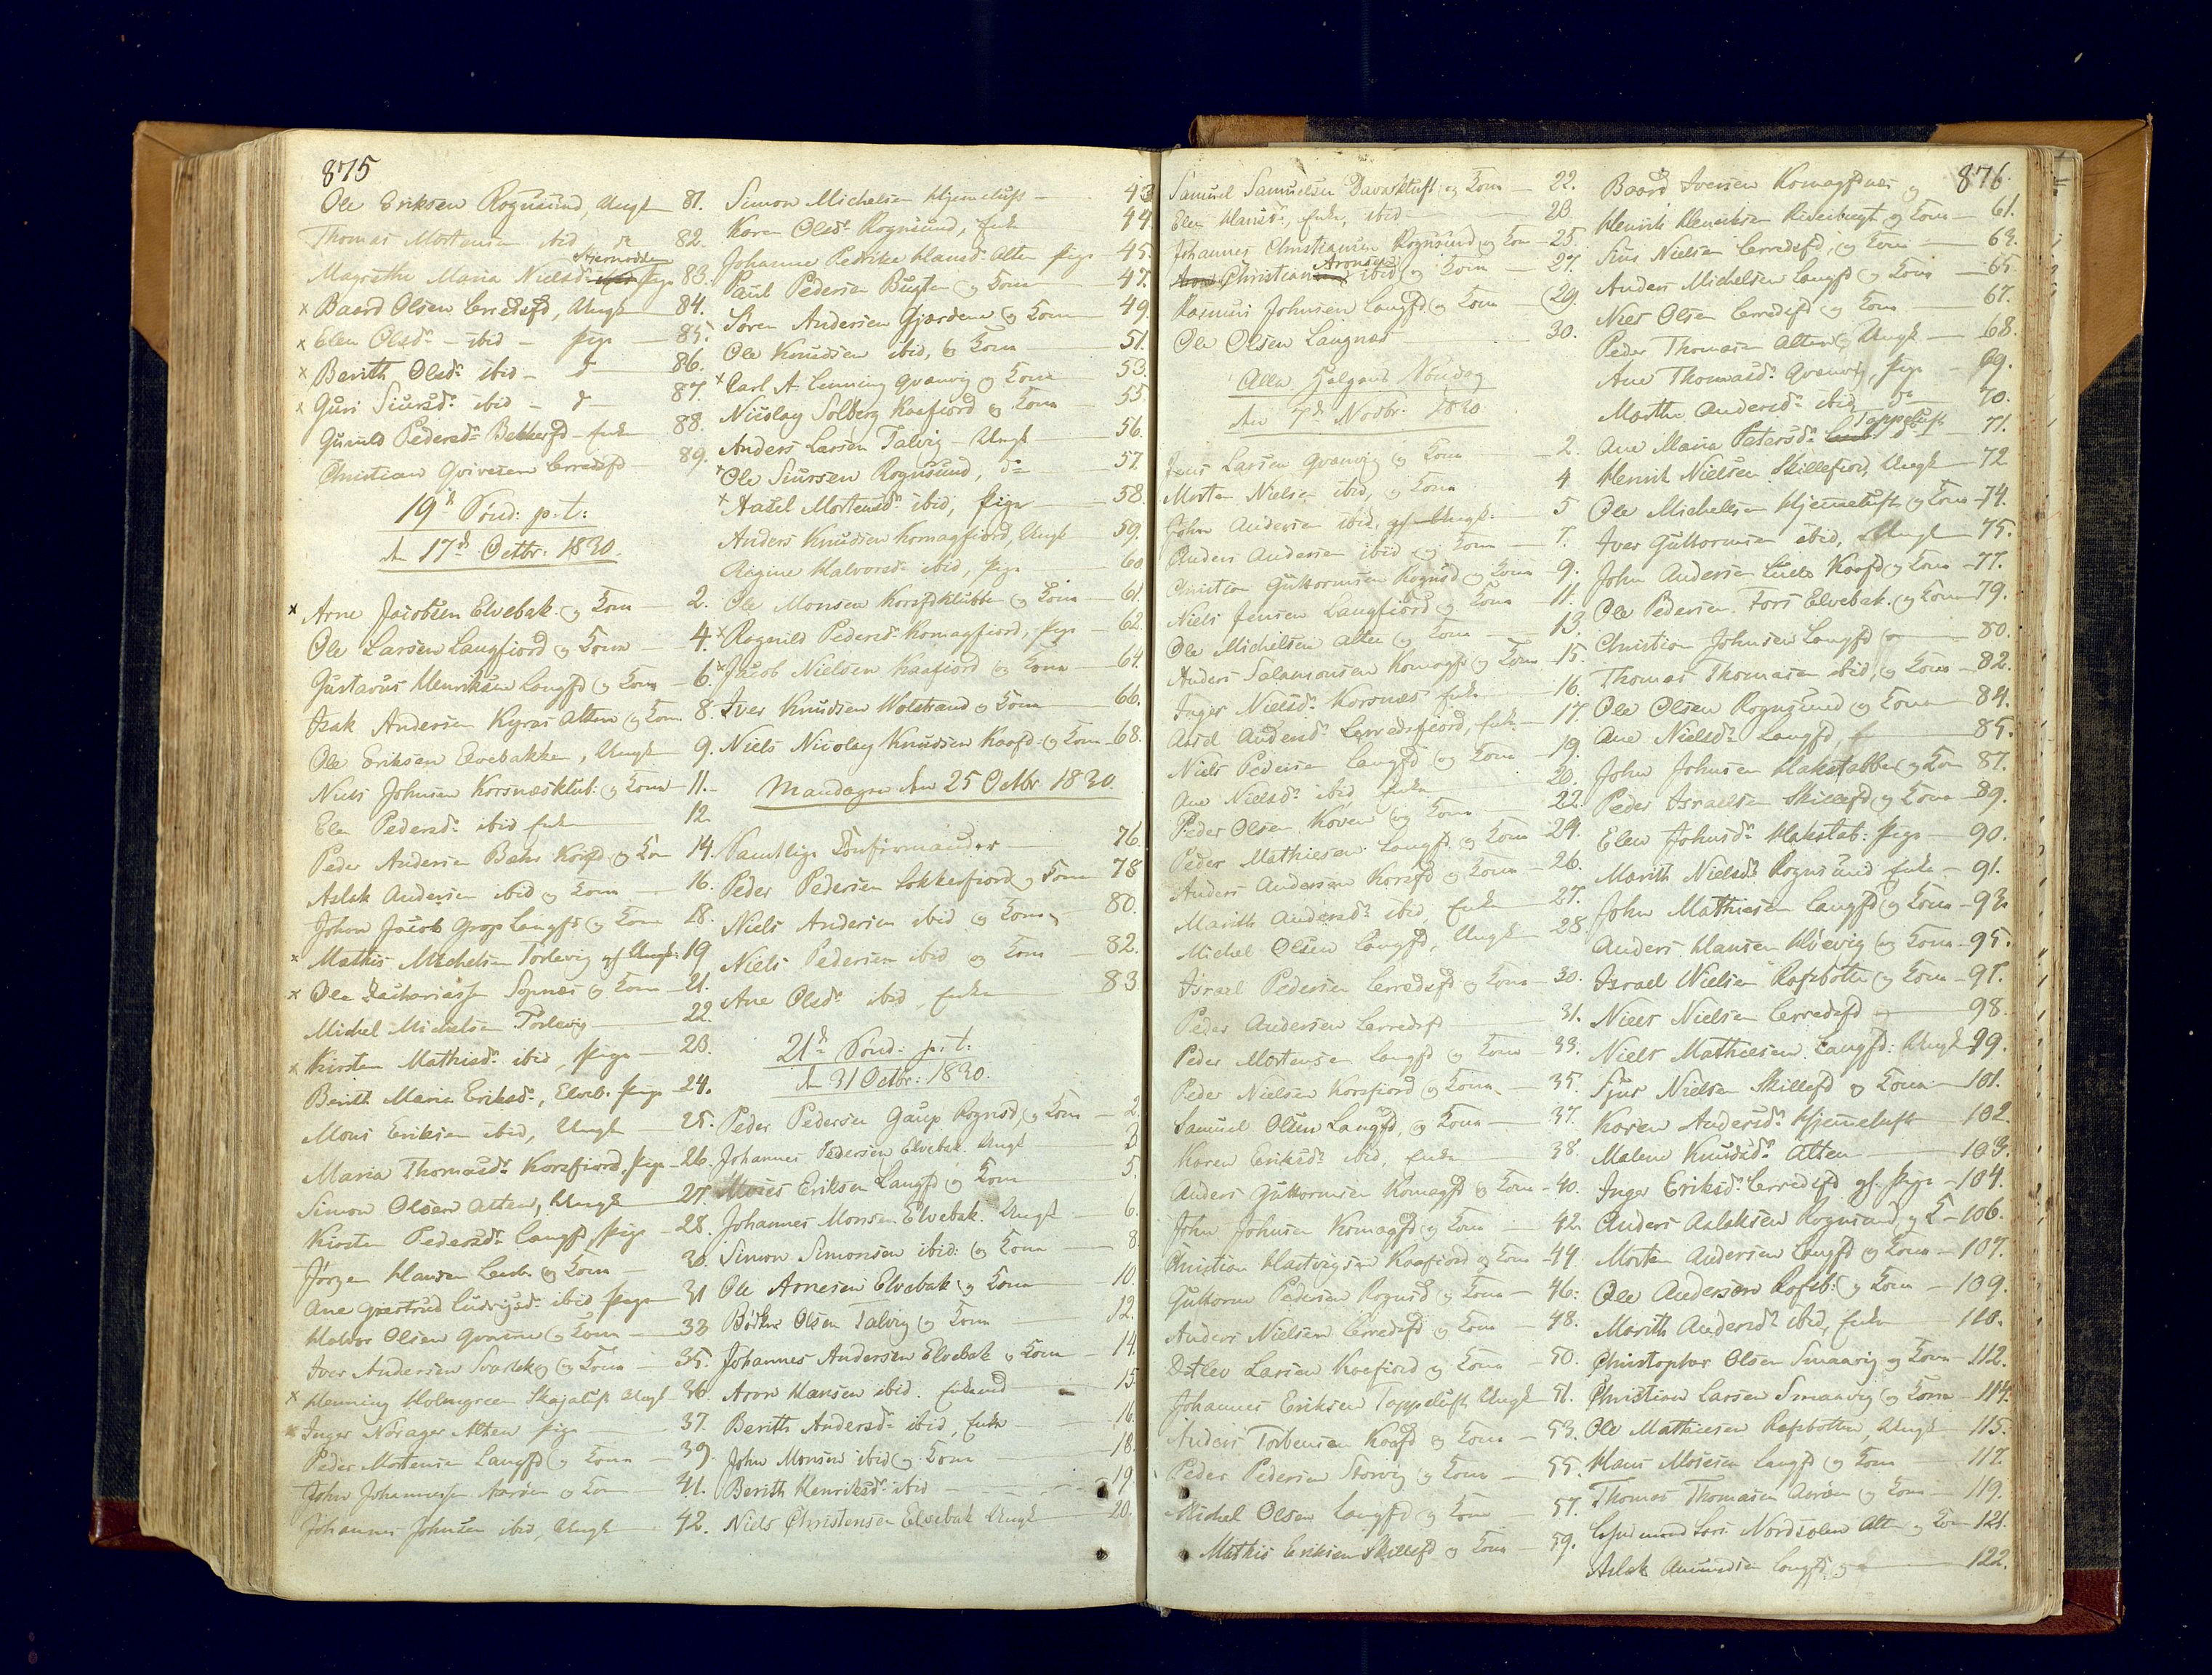 875
Ole Eriksen Rognsund, Ungk 81.
Thomas Mortensen ibid do 82.
Stjernodden
Magrethe Maria Nielsdr Pige 83.
x Baard Olsen Lerredsfd, Ungk 84.
x Elen Olsdr - ibid - Pige - 85.
x Berith Olsdr ibid - do - 86.
x Guri Siursdr ibid - do - 87.
Gunild Pedersdr Bekkerfd - Enke 88.
Christian Lerredsfd 89.
19de Sønd: p. t:
den 17de Octbr: 1830.
x Arne Jacobsen Elvebak. og Kona 2.
Ole Larsen Langfiord og Kona 4.
Gustavus Henriksen Langfd og Kona 6.
Isak Andersen Kyræs Alten og Kona 8.
Ole Eriksen Elvebakken, Ungk 9.
Niels Johnsen Korsnæsklub: og Kona 11.
Elen Pedersdr ibid Enke 12.
Peder Andersen Bahr Korsfd og Kon 14.
Aslak Andersen ibid og Kona 16.
Johan Jacob Grop Langfd og Kona 18.
x Mathis Michelsen Torlevig gf Ungk: 19
x Ole Zachariass. Sopnæs og Kona 21.
Michel Michelsen Torlevig 22.
x Kirsten Mathisdr ibid, Pige 23.
Berith Maria Eriksdr, Elveb. Pige 24.
Mons Eriksen ibid, Ungk 25.
Maria Thomasdr Korsfiord, Pige 26.
Simon Olsen Alten, Ungk 27.
Kirsten Pedersdr Langfd, Pige 28.
Jörgen Hansen og Kona 30.
Ane Giertrud Ludvigsdr ibid, Pige 31
Haldor Olsen og Kona 33
Iver Andersen og Kona 35.
x Henning Holmgreen Skajaluft Ungk 36.
x Inger Nörager Alten Pige 37.
Peder Mortensen Langfd og Kona 39.
John Johannessen Aaröen og Kon 41.
Johannes Johnsen ibid, Ungk 42.
Simon Michelsen Hjemeluft 43
Karen Olsdr Rognsund, Enke 44.
Johanne Pedrikke Hansdr Alten Pige 45.
Paul Pedersen Bugten og Kona 47.
Søren Andersen Gjærdene og Kona 49
Ole Knudsen ibid, og Kona 51.
x Carl A. Lenning Qvænvig og Kona 53.
Nicolay Solberg Kaafiord og Kona 55
Anders Larsen Talvig - Ungk 56.
x Ole Siursen Rognsund, do 57.
x Aasel Mortensdr ibid, Pige 58.
Anders Knudsen Komagfiord, Ungk 59.
Regine Halvorsdr ibid, Pige 60
Ole Monsen Korsfdklubben og Kona 61.
x Ragnild Pedersdr Komagfiord, Pige 62
x Jacob Nielsen Kaafiord og Kona 64.
Iver Knudsen Wolstrand og Kona 66.
Niels Nicolay Knudsen Kaafd og Kona 68.
Mandagen den 25 Octbr 1830
Samtlige Confirmander 76.
Peder Pedersen Lokkerfiord og Kona 78
Niels Andersen ibid og Kona 80.
Niels Pedersen ibid og Kona 82.
Ane Olsdr ibid Enke 83.
21de Sønd: p. t:
den 31 Octbr: 1830.
Peder Pedersen Gaup Rognsd, og Kona 2.
Johannes Pedersen Elvebak. Ungk 3
Moses Eriksen Langfd og Kona 5.
Johannes Monsen Elvebak. Ungk 6.
Simon Simonsen ibid: og Kona 8
Ole Arnesen Elvebak: og Kona 10.
Bødker Olsen Talvig og Kona 12.
Johannes Andersen Elvebak og Kona 14.
Aron Hansen ibid. Enkemd 15
Berith Andersdr ibid, Enke 16.
John Monsen ibid og Kona 18.
Berith Henriksdr ibid 19
Niels Christensen Elvebak Ungk 20.
876.
Samuel Samuelsen Davaskluft og Kona 22.
Elen Hansdr, Enke, ibid 23.
Johannes Christiansen Rognsund og Kon 25.
Aronsen
Christian ibid og Kona 27.
Rasmus Johnsen Langfd og Kona 29.
Ole Olsen Langnæs 30.
Alle Helgens Søndag
den 7de Novbr. 1830.
Jens Larsen Qvænvig og Kona 2.
Morten Nielsen ibid, og Kona 4
John Andersen ibid, gf. Ungk. 5
Anders Andersen ibid og Kona 7.
Christian Guttormsen Rognsd og Kona 9.
Niels Jensen Langfiord og Kona 11.
Ole Michelsen Alten og Kona 13.
Anders Salamonsen Komagfd og Kona 15.
Inger Nielsdr Korsnæs Enke 16.
Aasel Andersdr Lerredsfiord, Enke 17.
Niels Pedersen Langfd og Kona 19
Ane Nielsdr ibid Enke 20.
Peder Olsen Köven og Kona 22.
Peder Mathiesen Langfd og Kona 24.
Anders Andersen Korsfd og Kona 26.
Marith Andersdr ibid, Enke 27.
Michel Olsen Langfd, Ungk 28
Israel Pedersen Lerredsfd og Kona 30.
Peder Andersen Lerredsfd 31.
Peder Mortensen Langfd og Kona 33.
Peder Nielsen Korsfiord og Kona 35.
Samuel Olsen Langfd, og Kona 37.
Karen Eriksdr ibid, Enke 38.
Anders Guttormsen Komagfd og Kona 40.
John Johnsen Komagfd og Kona 42.
Christian Hartvigsen Kaafiord og Kona 44.
Guttorm Pedersen Rognsd og Kona 46.
Anders Nielsen Lerredsfd og Kona 48.
Detlev Larsen Kaafiord og Kona 50.
Johannes Eriksen Toppeluft Ungk 51.
Anders Torbensen Kaafd og Kona 53.
Peder Pedersen Storvig og Kona 55.
Michel Olsen Langfd og Kona 57.
Mathis Eriksen Skillefd og Kona 59.
Baard Iversen Komagfdnæs og
Henrik Henriksen Reverbugt og Kona 61.
Siur Nielsen Lerredsfd, og Kona 63.
Anders Michelsen Langfd og Kona 65
Niels Olsen Lerredsfd og Kona 67.
Peder Thomasen Alten, Ungk 68.
Ane Thomasdr Qvænvig, Pige 69.
Marthe Andersdr ibid, do 70.
Toppeluft
Ane Maria Petersdr do 71.
Henrik Nielsen Skillefiord, Ungk 72
Ole Michelsen Hjemeluft og Kona 74.
Iver Guttormsen ibid, Ungk 75.
John Andersen Kaafd og Kona 77.
Ole Pedersen Fors Elvebak. og Kona 79.
Christian Johnsen Langfd 80.
Thomas Thomasen ibid, og Kona 82.
Ole Olsen Rognsund og Kona 84.
Ane Nielsdr Langfd, 85.
John Johnsen Hakstabben og Kon 87.
Peder Israelsen Skillefd og Kona 89.
Elen Johnsdr Hakstab: Pige 90.
Marith Nielsdr Rognsund Enke 91.
John Mathiesen Langfd og Kona 93.
Anders Hansen og Kona 95.
Israel Nielsen Rafsbotten og Kona 97.
Niels Nielsen Lerredsfd 98.
Niels Mathiesen Langfd: Ungk 99.
Sjur Nielsen Skillefd og Kona 101.
Karen Andersdr Hjemeluft 102.
Malene Knudsdr Alten 103.
Inger Eriksdr Lerredsfd gf. Pige 104.
Anders Aslaksen Rognsund og K 106.
Morten Andersen Langfd og Kona 107.
Ole Andersen Rafsb: og Kona 109.
Marith Andersdr ibid, Enke 110.
Christopher Olsen Smaavig og Kona 112.
Christian Larsen Smaavig og Kona 114.
Ole Mathiesen Rafsbotten, Ungk 115.
Hans Mosesen Langfd og Kona 117.
Thomas Thomasen Aaröen og Kona 119.
Lars Nordsolen Alten og Kon 121.
Aslak Amundsen Langfd og 122.